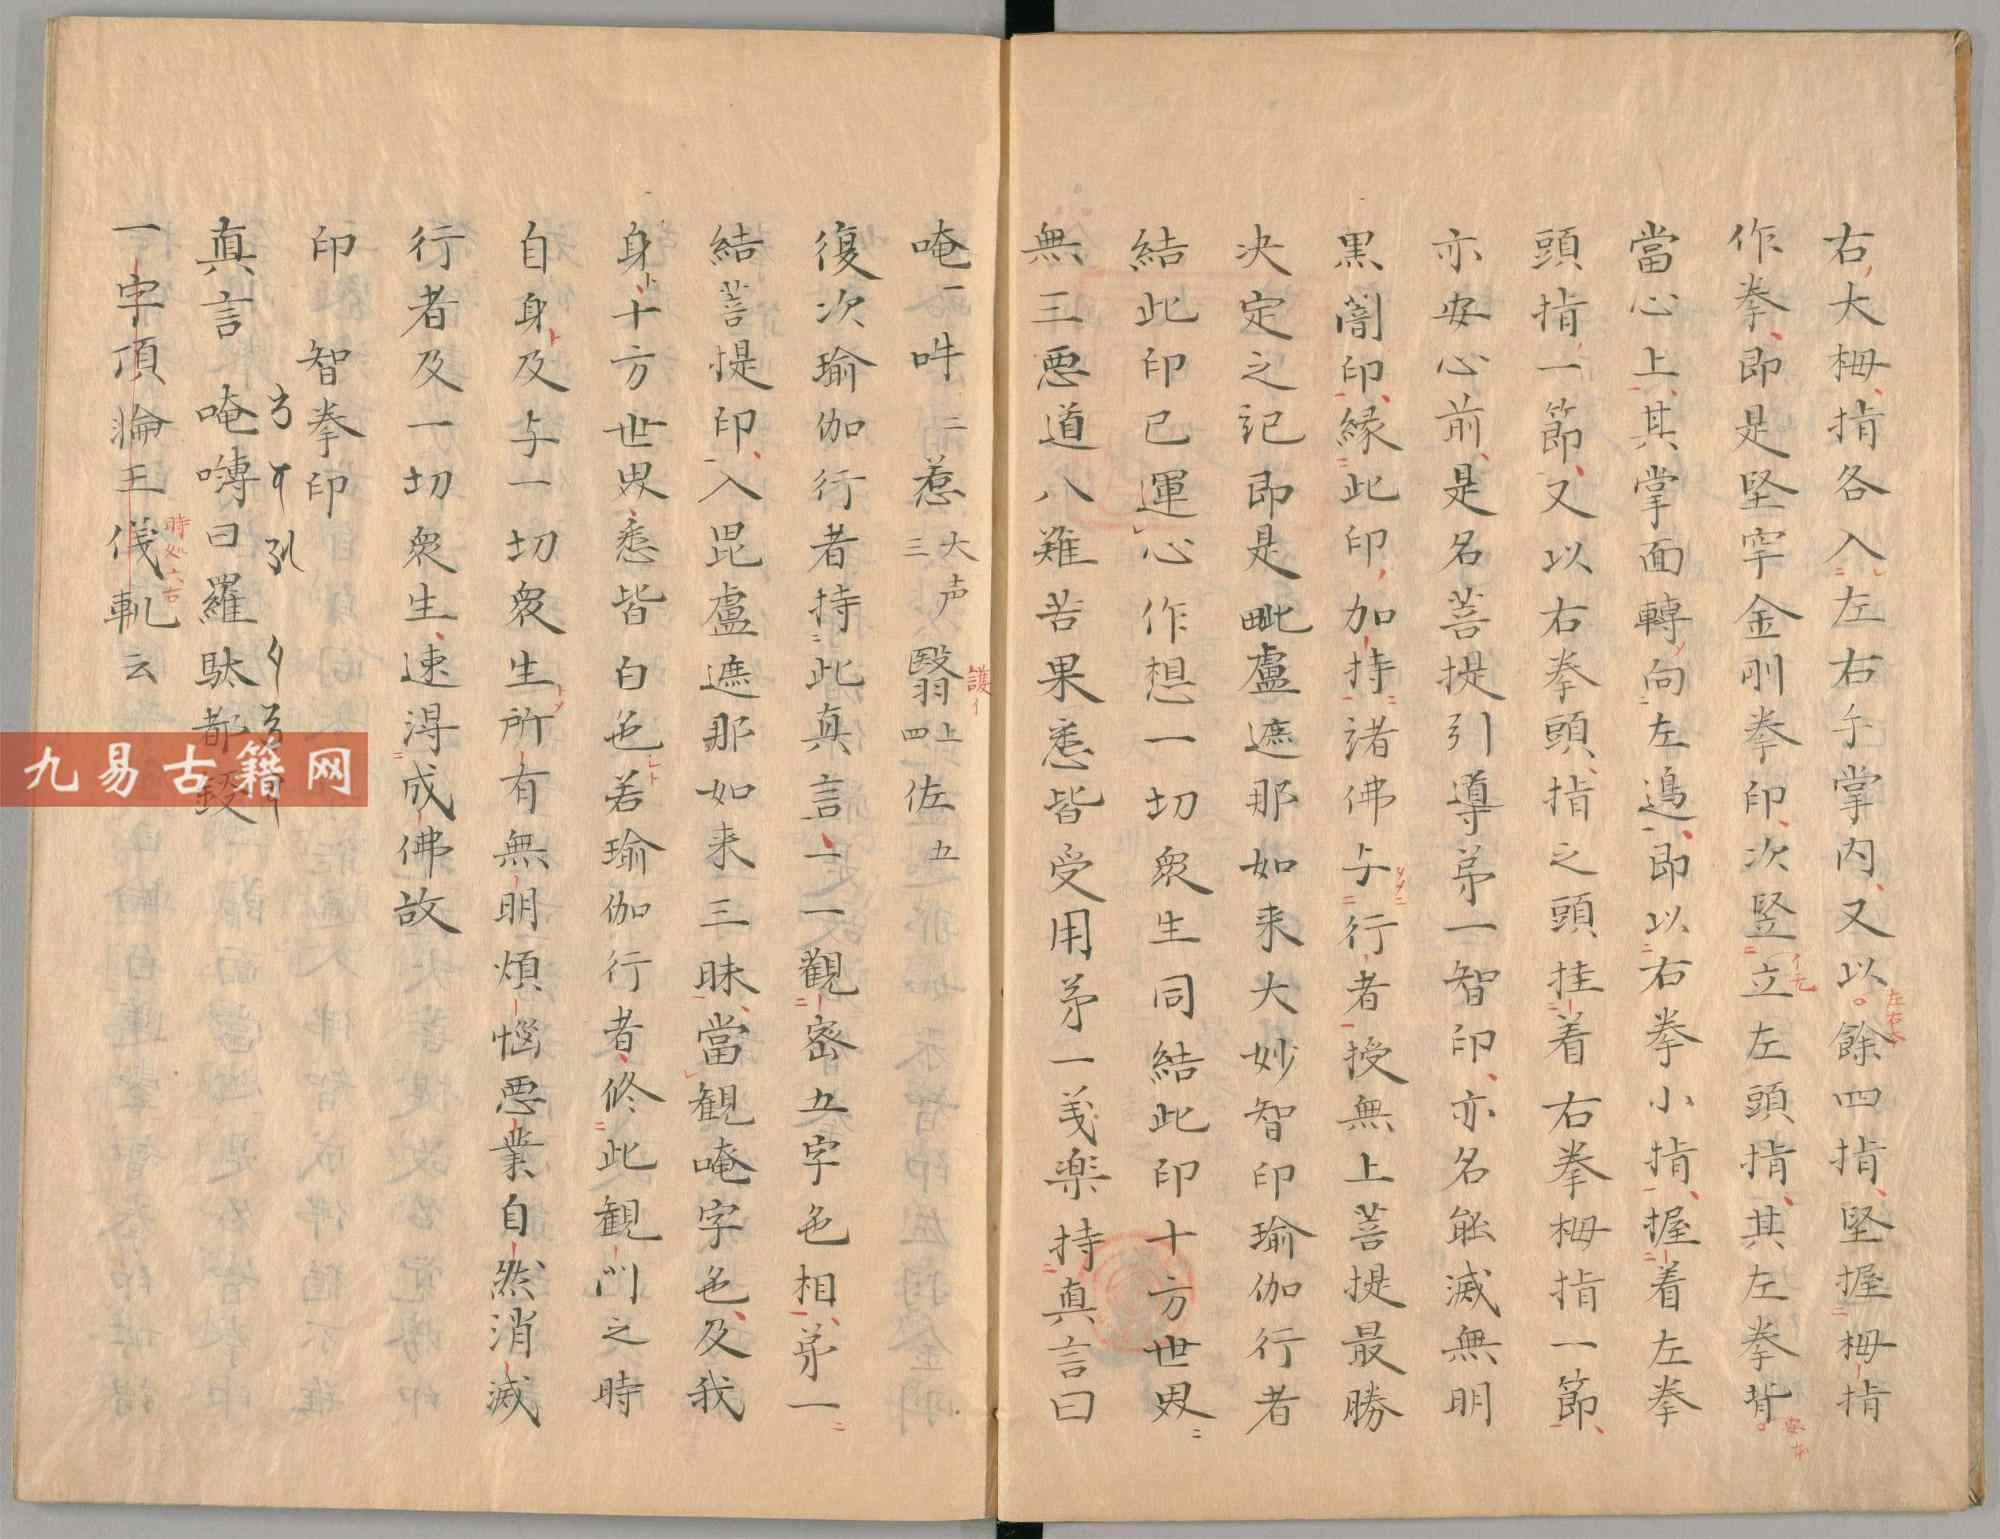 右大拇指各入左右手掌内又以餘四指堅握拇指
作拳即是堅牢金剛拳印次竪立左頭指其左拳背
當心上其掌面轉向左邊即以右拳小指握着左拳
頭指一節又以右拳頭指之頭拄着右拳拇指一節
亦安心前是名菩提引導苐一智印亦名能滅無明
黒闇印縁此印加持諸佛与行者授無上菩提最勝
决定之記即是毗盧遮那如来大妙智印瑜伽行者
結此印已運心作想一切衆生同結此印十方世界
無三惡道八難苦果悉皆受用苐一義楽持真言曰
唵一吽二惹大声三翳上四佐五
復次瑜伽行者持此真言一一觀密五字色相苐一
結菩提印入毘盧遮那如来三昧當観唵字色及我
身十方世界悉皆白色若瑜伽行者修此観門之時
自身及与一切衆生所有無明煩惱惡業自然消滅
行者及一切衆生速得成佛故
印 智拳印
真言 唵嚩日羅駄都鑁
一字頂輪王儀軌云
九易古籍网